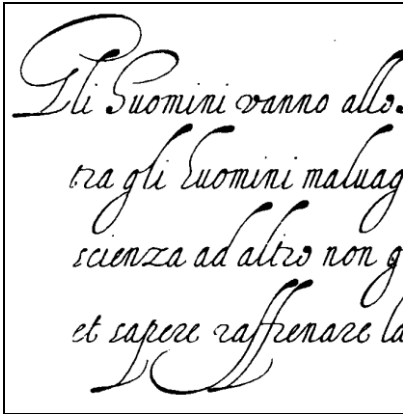 Gli huomini vanno allo
tra gli huomini maluag
scienza ad altro non g
et sapere raffrenare la